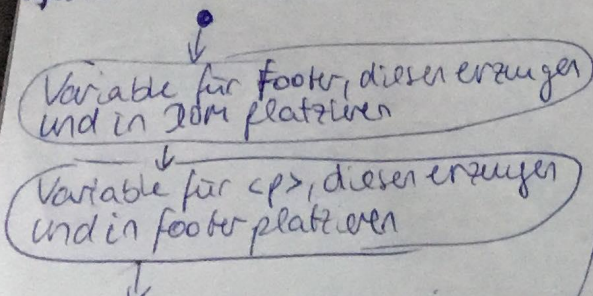 Variable für Footer, diesen erzeugen
und in DOM platzieren
Variable für <p>, diesen erzeugen
und in footer platzieren